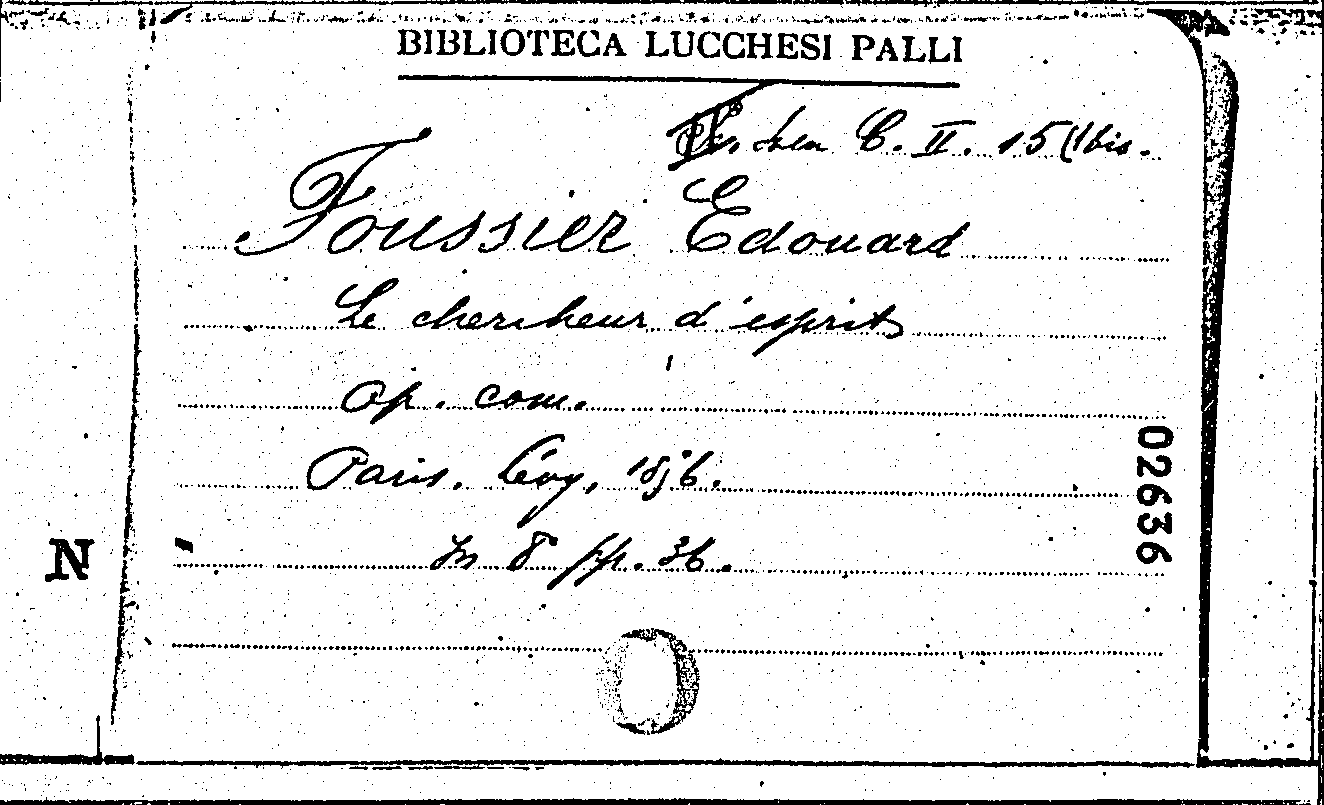 BIBLIOTECA LUCCHESI PALLI
C. II. 15 (1bis.
Foussier Edouard
Le chercheur d'esprit
Op. com.
Paris. Lévy, 1856.
In 8° pp. 36.
02636
N